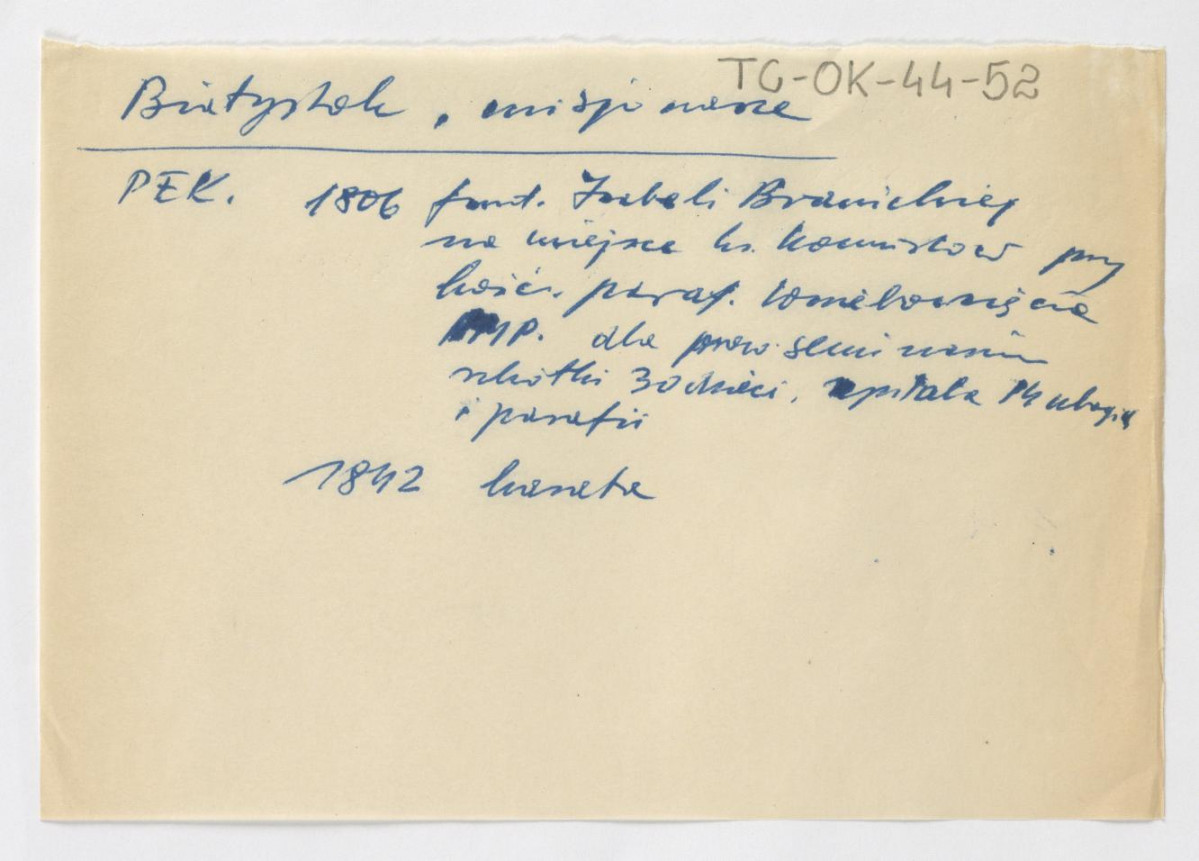 TG-OK-44-52
Białystok, misjonarze
PEK. 1806 fund. Izabeli Branickiej
na miejsce ks. Komunistów przy
kośc. paraf. Wniebowzięcia
NMP. dla prow. seminarium
szkółki 30 dzieci, szpitala 14 ubogich
i parafii
1842 kasata